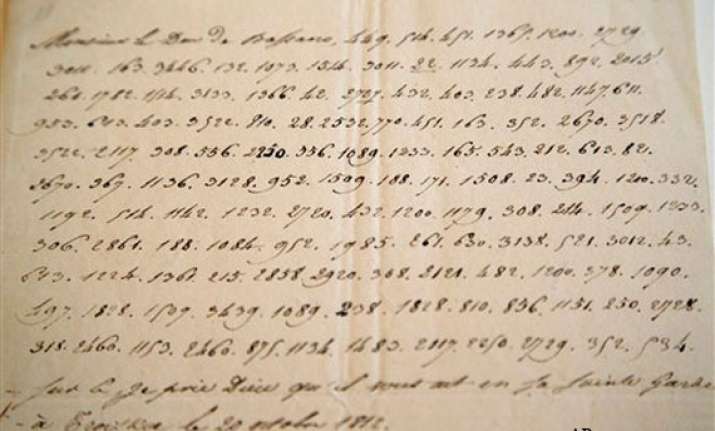 Monsieur le Duc de Bassano, 449. 514. 451. 1365. 1200. 2729.
3011. 163. 3446. 132. 1073. 1314. 3011. 22. 1134. 443. 892. 2015.
261. 1782. 1114. 3133. 1366. 42. 2727. 432. 403. 238. 482. 1147. 611.
953. 643. 403. 3522. 810. 28. 2532. 770. 451. 163. 352. 2670. 3518.
3522. 2117. 308. 536. 2250. 356. 1089. 1233. 165. 543. 212. 613. 82.
3670. 367. 1136. 3128. 952. 1509. 188. 171. 1508. 23. 394. 1200. 332.
1192. 514. 1142. 1232. 2720. 432. 1200. 1179. 308. 214. 1509. 1233.
306. 2861. 188. 1084. 952. 1985. 261. 630. 3138. 521. 3012. 43.
643. 1224. 1361. 215. 2858. 2920. 308. 2121. 482. 1200. 378. 1090.
497. 1828. 1509. 3439. 1089. 238. 1828. 810. 836. 1151. 250. 2728.
318. 2460. 1153. 2460. 875. 1134. 1483. 2117. 2250. 2729. 352. 534.
sur ce je prie Dieu qu'il vous ait en sa Sainte Garde
à le 20 octobre 1812.
AP